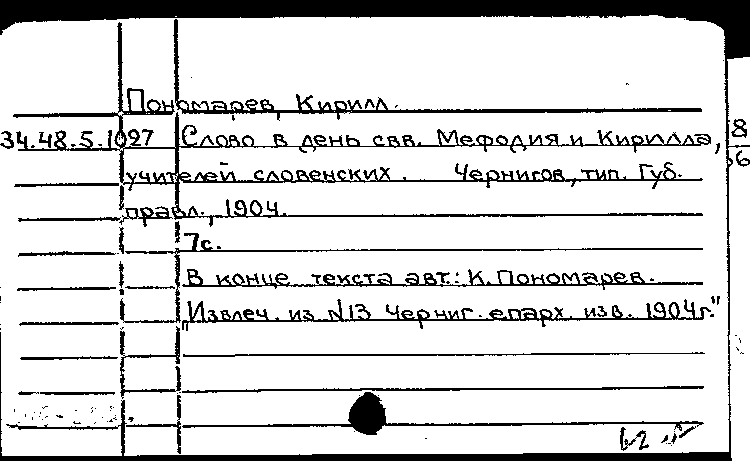 Пономарев, Кирилл.
34.48.5.1027 Слово в день свв. Мефодия и Кирилла,
учителей словенских. Чернигов, тип. Губ.
правл., 1904.
7с.
В конце текста авт.: К. Пономарев.
"Извлеч. из N13 Черниг. епарх. изв. 1904г."